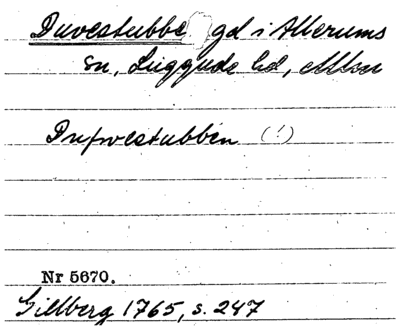 Duvestubbe gd i Allerums
sn, Luggude hd, Mlm
Dufwestubben (!)
Nr 5670.
Gillberg 1765, s. 247